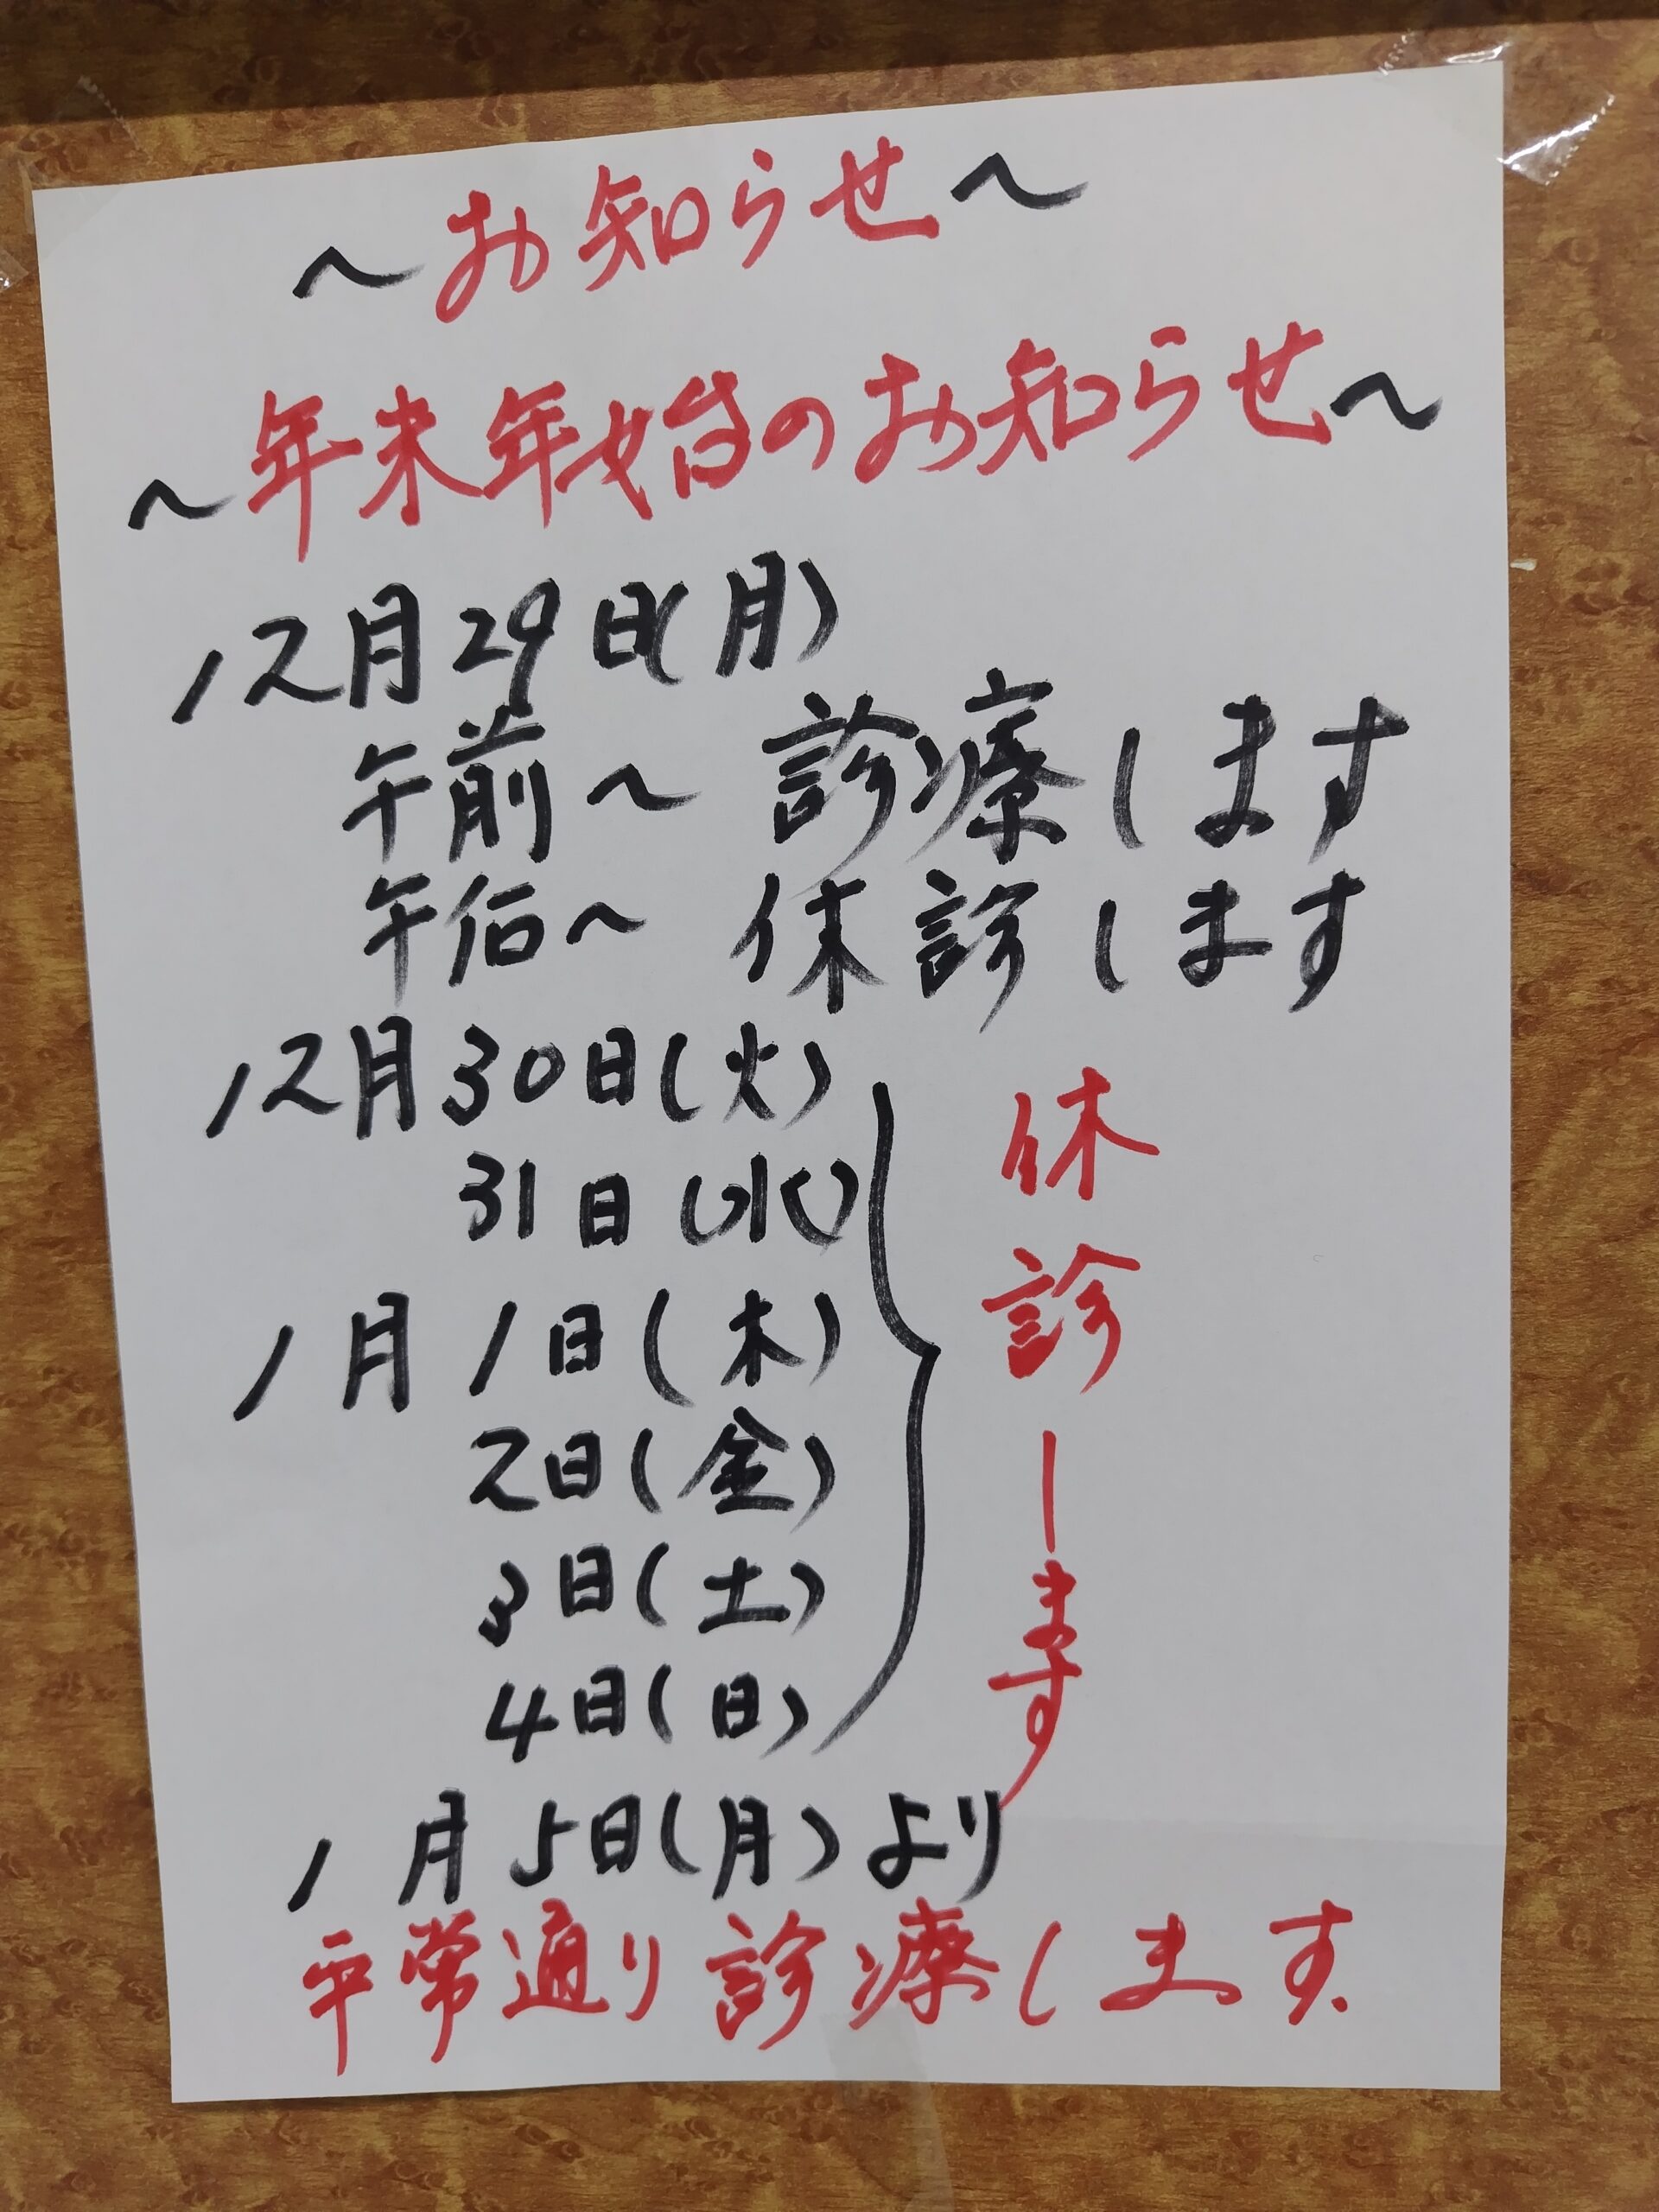 ～お知らせ～
～年末年始のお知らせ～
12月29日(月)
午前～ 診療します
午后～ 休診します
12月30日(火)
31日(水)
1月1日(木)
2日(金)
3日(土)
4日(日)
休診します
1月5日(月)より
平常通り診療します.